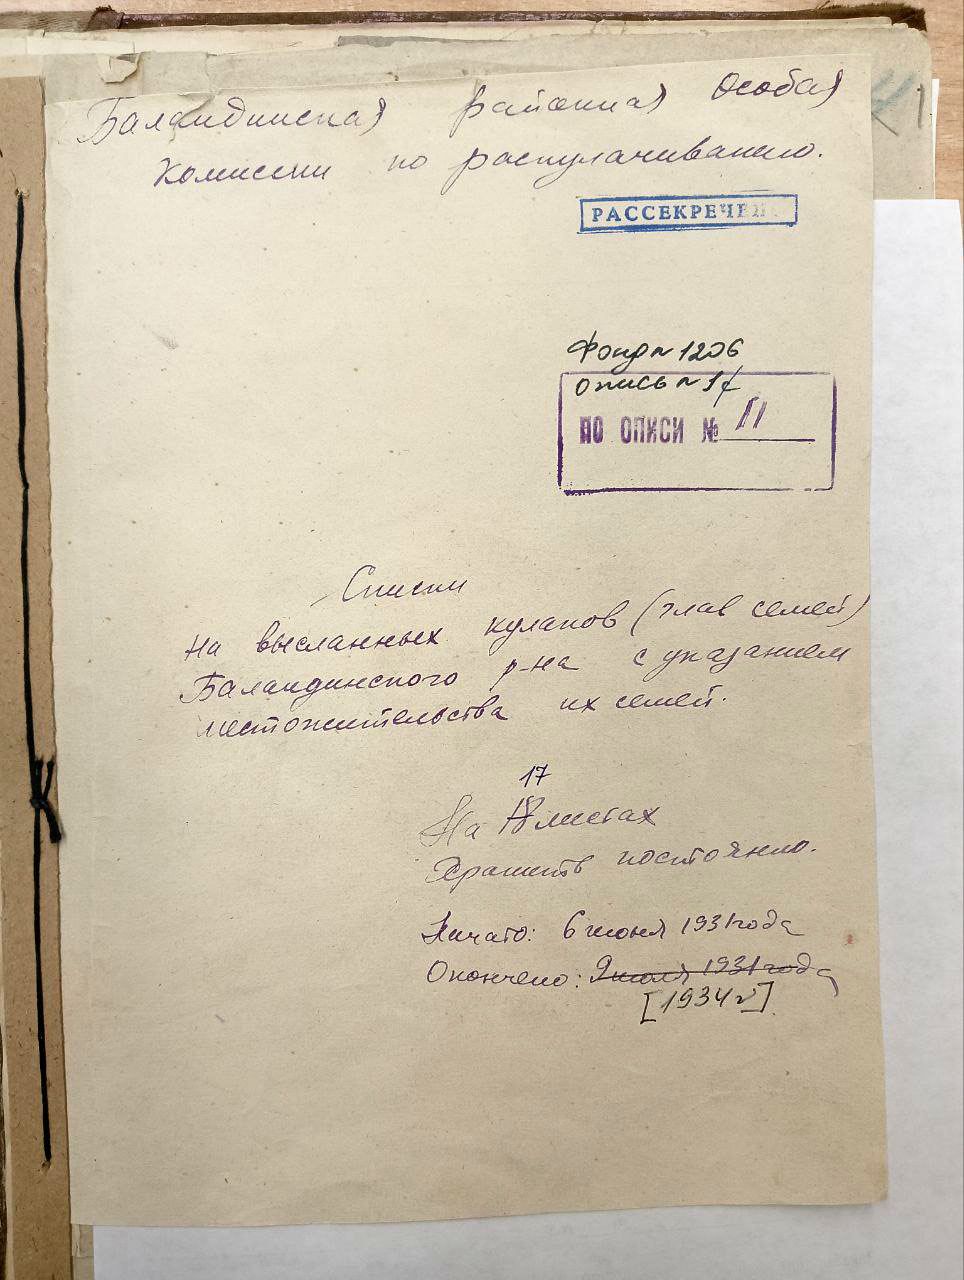 Баландинская районная особая
комиссии по раскулачиванию.
РАССЕКРЕЧЕН
Фонд № 1206
опись № 1
ПО ОПИСИ № 11
Списки
на высланных кулаков (глав семей)
Баландинского р-на с указанием
местожительства их семей.
17
На 18 листах
Хранить постоянно.
Начато: 6 июня 1931 года
Окончено: 9 июля 1931 года
[1934 г]